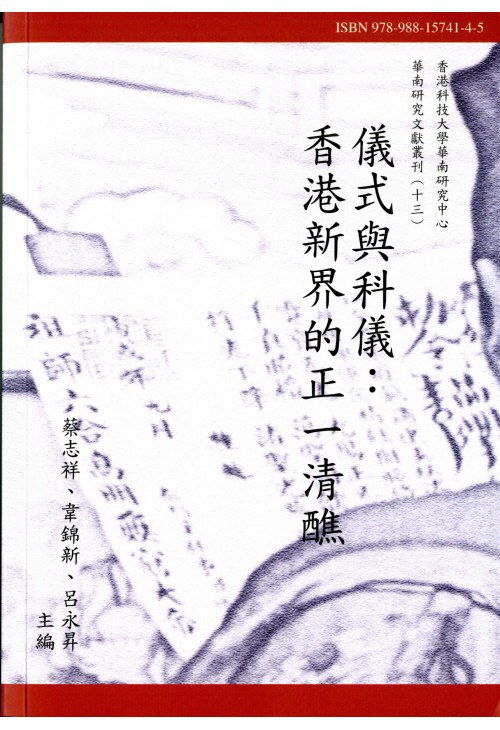 ISBN 978-988-15741-4-5
香港科技大學華南研究中心
華南研究文獻叢刊（十三）
儀式與科儀：
香港新界的正一清醮
蔡志祥、韋錦新、呂永昇
主編